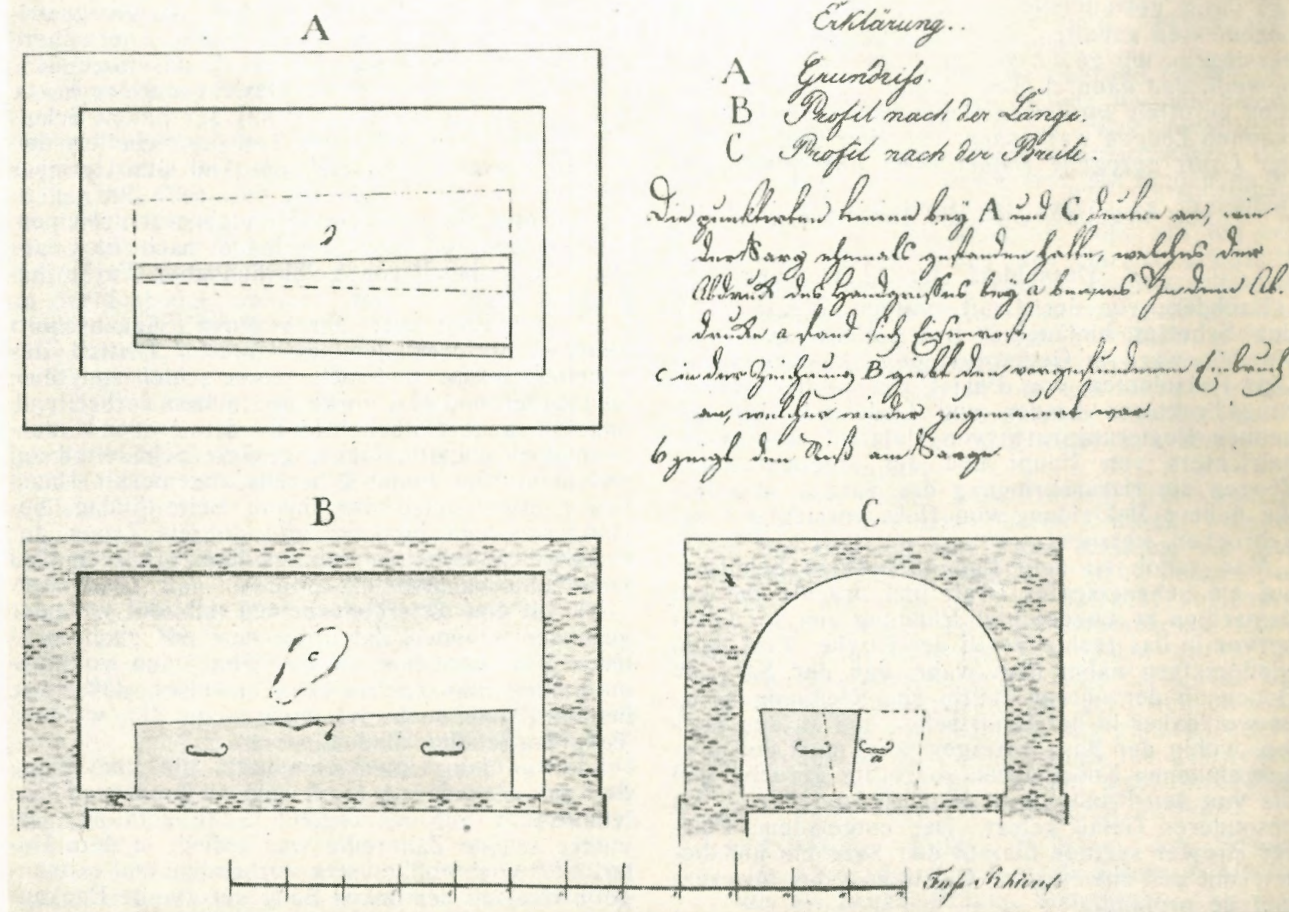 A
Erklärung..
A Grundriss.
B Profil nach der Länge.
C Profil nach der Breite.
Die punktirten Linien bey A und C deuten an, wie
der Sarg ehemals gestanden hatte, welches der
Abdruck des Handgriffes bey a bewies. In dem Ab-
drucke a fand sich Eisenrost.
c in der Zeichnung B giebt den vorgefundenen Einbruch
an, welcher wieder zugemauert war.
b zeigt den Riß am Sarge
B
C
c
b
a
Fuss